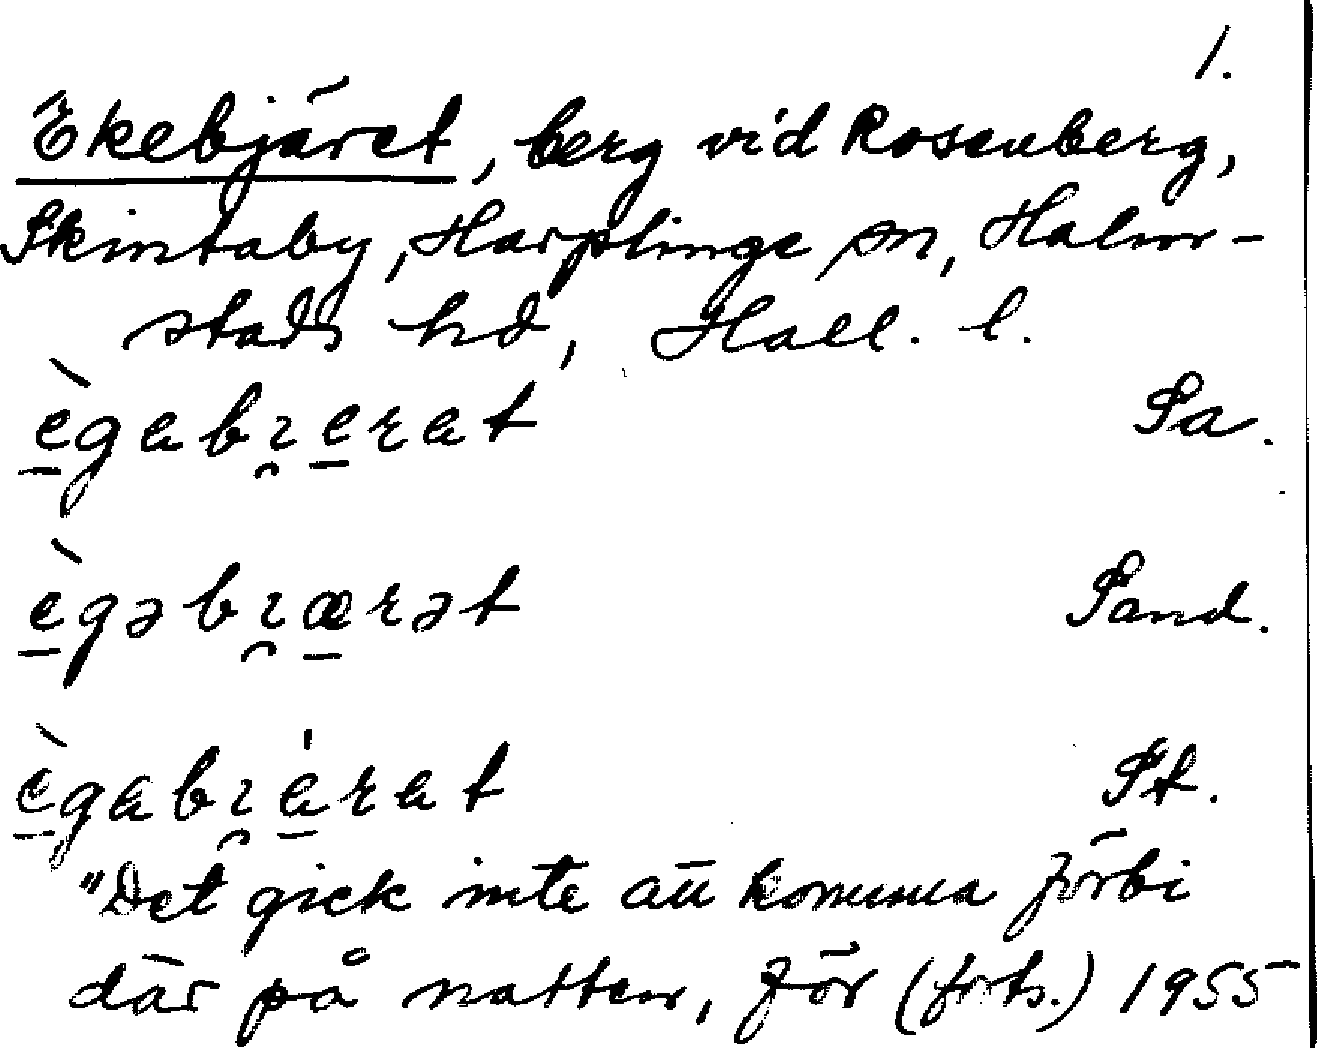 1.
Ekebjäret, berg vid Rosenberg,
Skintaby, Harplinge sn, Halm-
stads hd, Hall. l.
è̱gabɿ̯e̱rat Sa.
è̱gəbɿ̯æ̱rət Sand.
è̱gabɿ̯a̱̍rat St.
"Det gick inte att komma förbi
där på natten, för (forts.) 1955